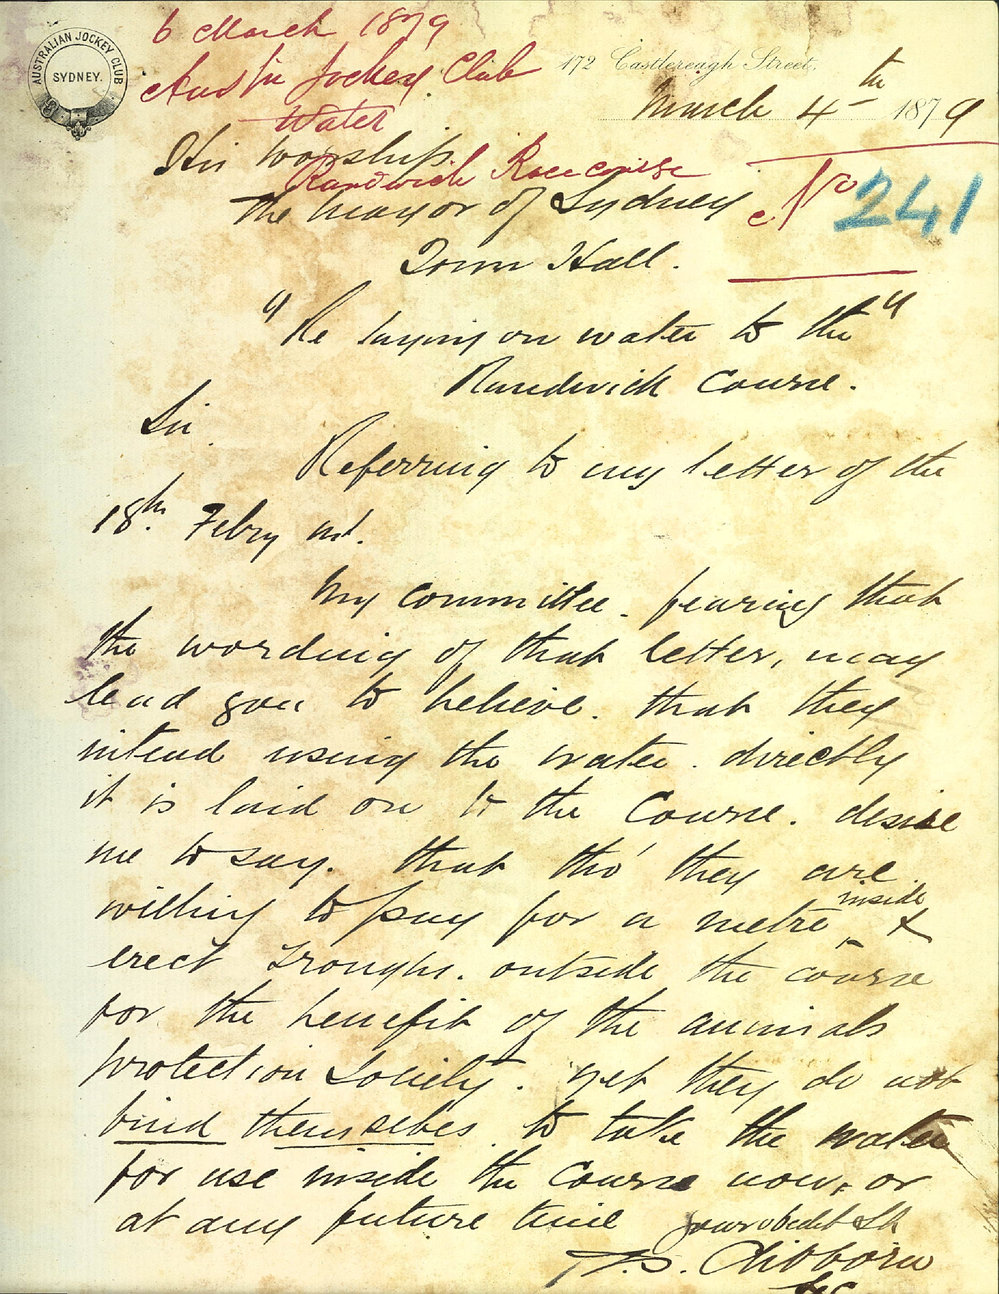 AUSTRALIAN JOCKEY CLUB
SYDNEY.
6 March 1879
Austn Jockey Club
Water
Randwick Racecourse
No 241
172 Castlereagh Street,
March 4th 1879
His worship
The Mayor of Sydney
Town Hall.
"Re laying on water to the"
Randwick Course.
Sir.
Referring to my letter of the
18th. Febry
My committee. fearing that
the wording of that letter, may
lead you to believe. that they
intend using the water. directly
it is laid on to the Course. desire
me to say. that tho' they are
willing to pay for a metre inside &
erect troughs. outside the course
for the benefit of the animals
protection Society. yet they do not
bind themselves. to take the water
for use inside the course now, or
at any future time
your obedt
T.S. Clibborn
Sec